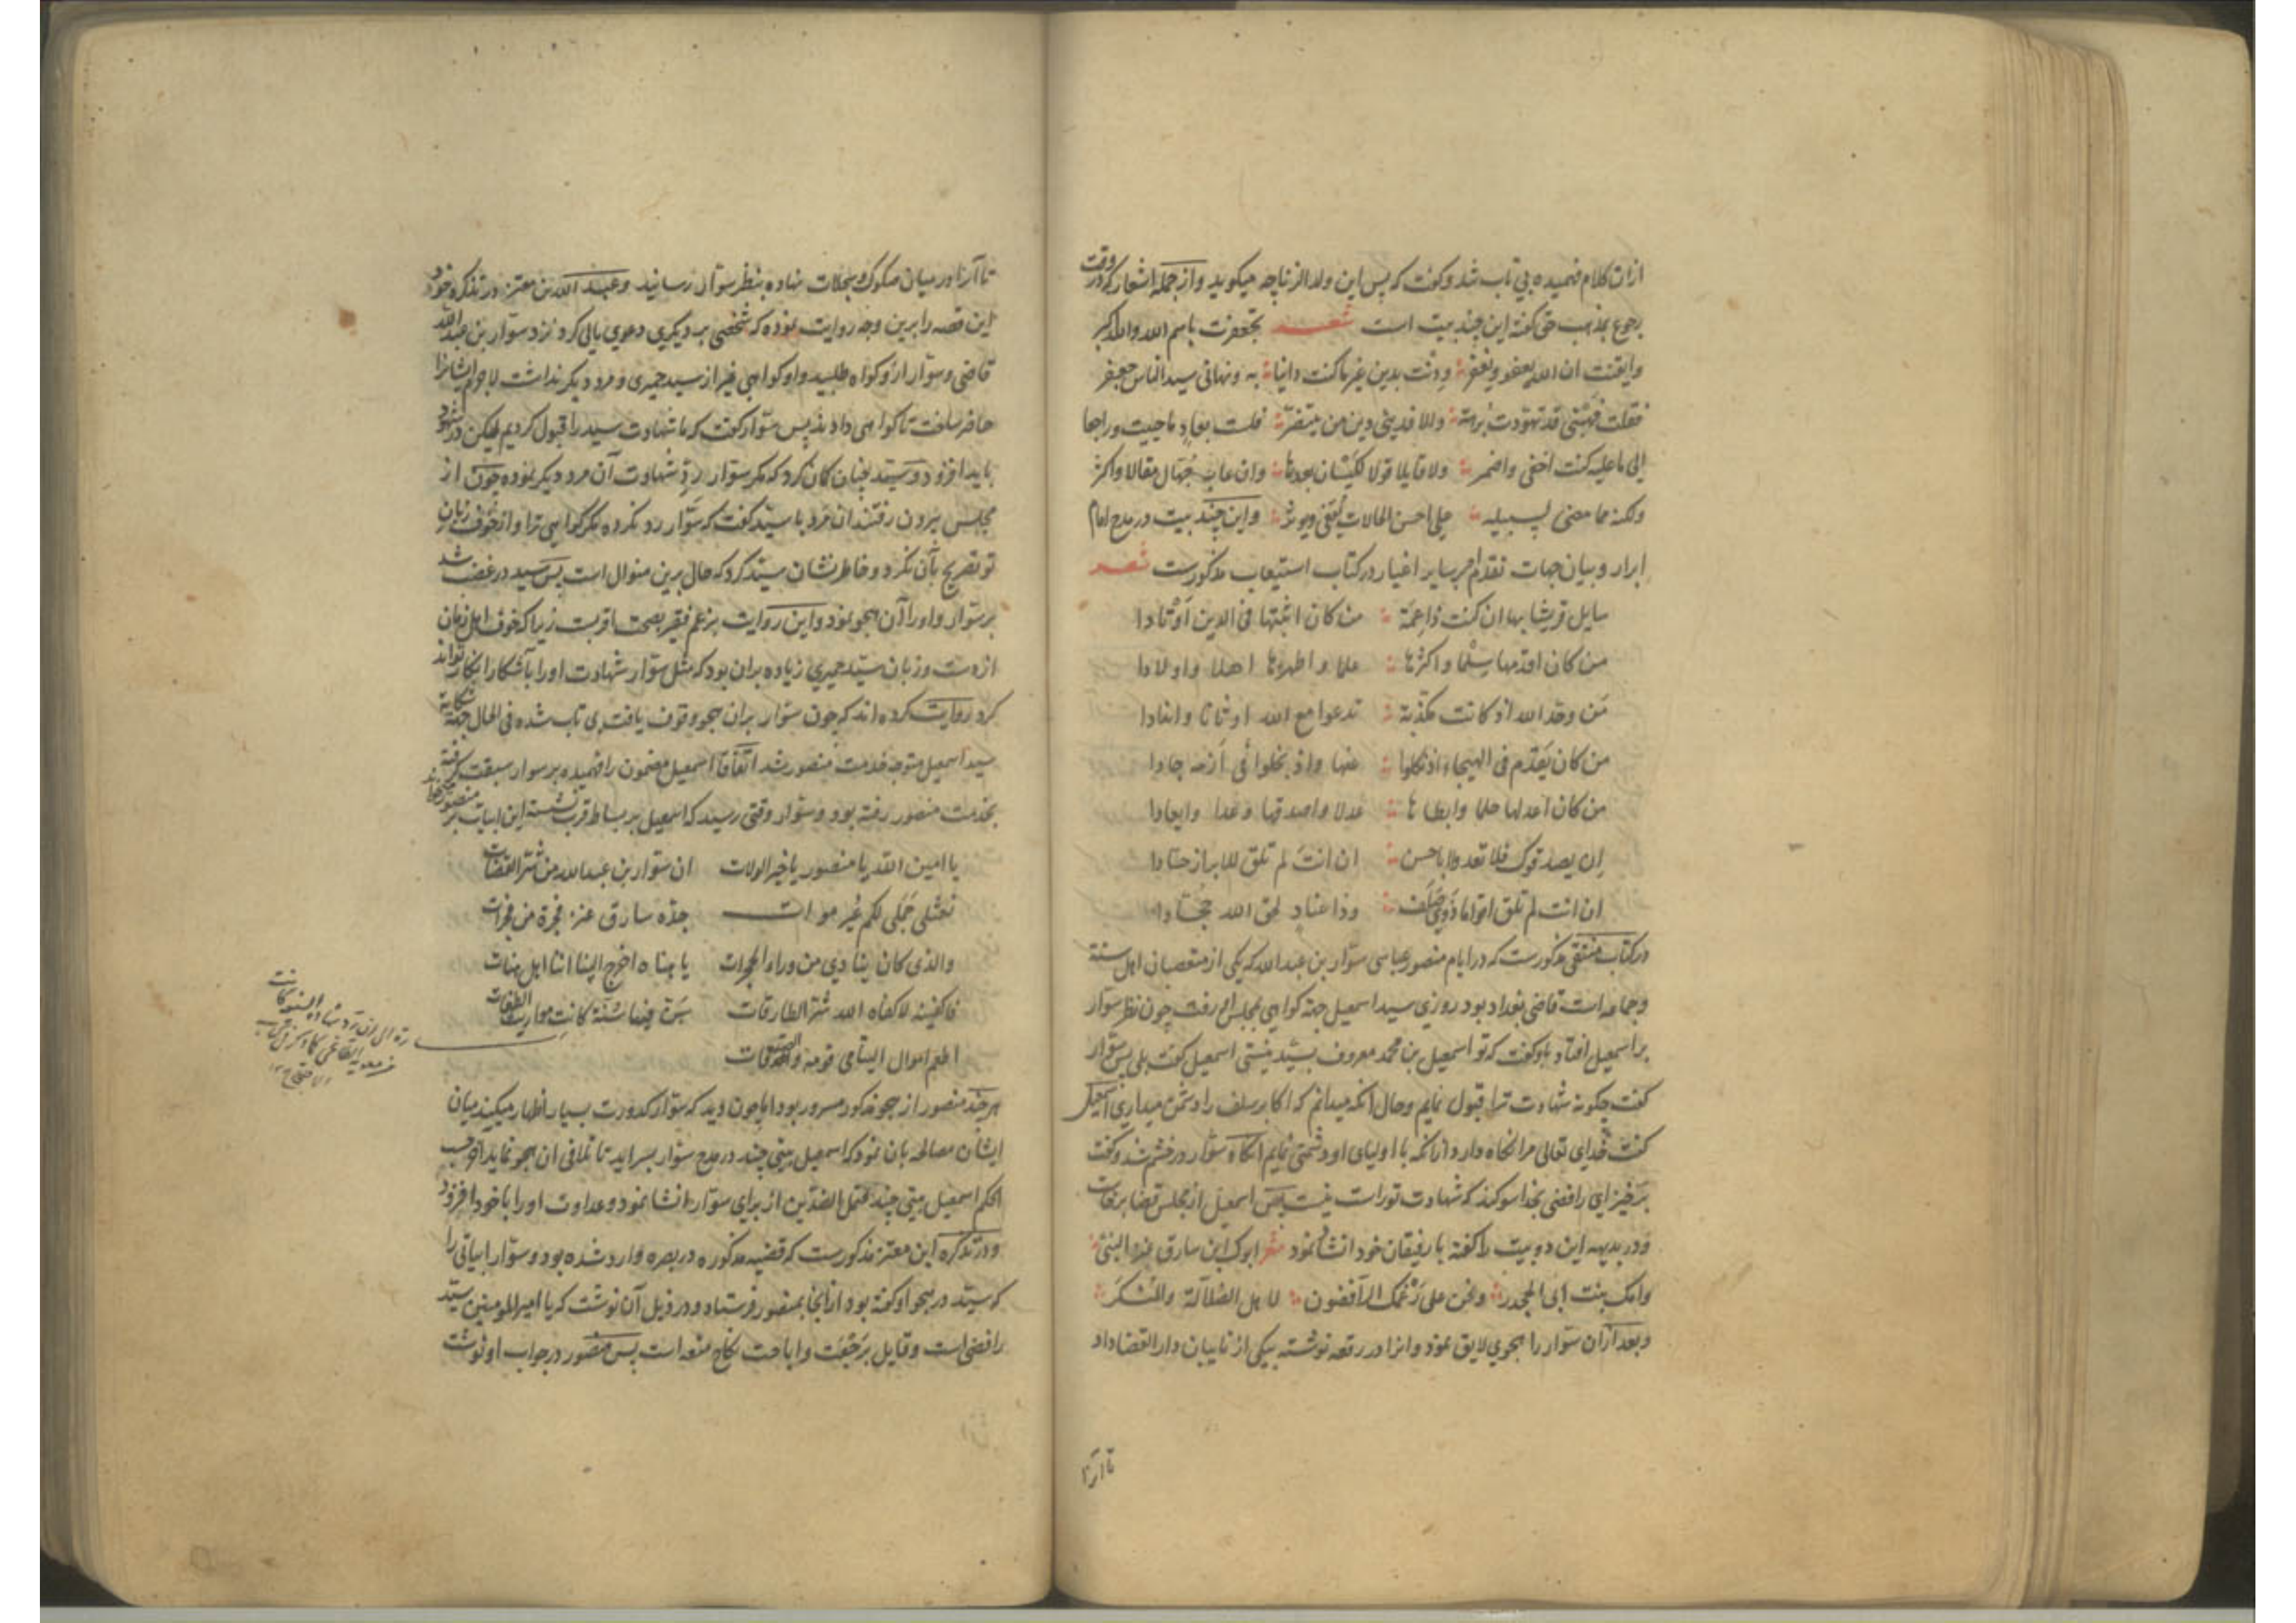 ازان کلام فهمیده بی تاب شد و گفت که پس این ولد الزنا چه میگوید و از جمله اشعار که در وقت
رجوع بمذهب حق گفته این چند بیت است شعر تجعفرت باسم الله والله اکبر
وایقنت ان الله یعفو ویغفر ودنت بدین غیر ما کنت داینا به ونهانی سید الناس جعفر
فقلت فهبنی قد تهودت برهة والا فدینی دین من یتنصر فلست بغاد ما حییت وراجعا
الی ما علیه کنت اخفی واضمر ولا قایلا قولا لکیسان بعدها وان عاب جهال مقالا واکثر
ولکنه مما مضی لسبیله علی احسن الحالات یقفی ویوثر و این چند بیت در مدح امام
ابرار و بیان جهات تقدم او بر سایر اغیار در کتاب استیعاب مذکورست شعر
سایل قریشا بها ان کنت ذا عمة من کان اثبتها فی الدین اوتادا
من کان اقدمها سلما واکثرها علما واطهرها اهلا واولادا
من وحد الله اذ کانت مکذبة تدعوا مع الله اوثانا واندادا
من کان یقدم فی الهیجاء اذ نکلوا عنها واذ بخلوا فی ازمة جادا
من کان اعدلها حلما وابسطها عدلا واصدقها وعدا وایعادا
ان یصدقوک فلا تعدوا ابا حسن ان انت لم تلق للابرار حسادا
ان انت لم تلق اقواما ذوی صلف وذا عناد لحق الله جحادا
در کتاب منتقی مذکورست که در ایام منصور عباسی سوار بن عبدالله که یکی از متعصبان اهل سنة
وجماعه است قاضی بغداد بود روزی سید اسمعیل جهة گواهی بمجلس او رفت چون نظر سوار
بر اسمعیل افتاد باو گفت که تو اسمعیل بن محمد معروف بسید نیستی اسمعیل گفت بلی پس سوار
گفت چگونه شهادت ترا قبول نمایم و حال آنکه میدانم که اکابر سلف را دشمن میداری اسمعیل
گفت خدای تعالی مرا نگاه دارد از آنکه با اولیای او دشمنی نمایم آنگاه سوار در خشم شد و گفت
برخیز ای رافضی بخدا سوگند که شهادت تو راست نیست پس اسمعیل از مجلس قضا برخاست
و در بدیهه این دو بیت را گفته با رفیقان خود انشا نمود شعر ابوک ابن سارق عنز النبی
وامک بنت ابی الجحدر ونحن علی زغمک الرافضون لاهل الضلالة والمنکر
و بعد ازان سوار را هجوی لایق نمود و انرا در رقعه نوشته بیکی از نایبان دار القضا داد
تا آنرا
تا آنرا در میان صکوک و سجلات نهاده بنظر سوار رسانید و عبد الله بن معتز در تذکره خود
این قصه را برین وجه روایت نموده که شخصی بر دیگری دعوی مالی کرد نزد سوار بن عبد الله
قاضی و سوار ازو گواه طلبید و او گواهی غیر از سید حمیری و مرد دیگر نداشت لاجرم ایشانرا
حاضر ساخت تا گواهی دادند پس سوار گفت که ما شهادت سید را قبول کردیم لیکن در شهود
باید افزود و سید چنان گمان کرد که مگر سوار رد شهادت آن مرد دیگر نموده چون از
مجلس بیرون رفتند ان مرد با سید گفت که سوار رد نکرده مگر گواهی ترا و از خوف زبان
تو تصریح بآن نکرد و خاطر نشان سید کرد که حال برین منوال است پس سید در غضب شد
بر سوار و او را آن هجو نمود و این روایت بزعم فقیر بصحت اقربست زیرا که خوف اهل زمان
از دست و زبان سید حمیری زیاده بران بود که مثل سوار شهادت او را بآشکارا انکار تواند
کرد روایت کرده اند که چون سوار بران هجو وقوف یافت بی تاب شده فی الحال جهة شکایة
سید اسمعیل متوجه خدمت منصور شد اتفاقا اسمعیل مضمون را فهمیده بر سوار سبقت گرفته
بخدمت منصور رفته بود و سوار وقتی رسید که اسمعیل بر بساط قرب نشسته این ابیات بر منصور میخواند
یا امین الله یا منصور یا خیر الولات ان سوار بن عبدالله من شر القضات
نعثلی جملی لکم غیر موات جده سارق عنز فجرة من فجرات
والذی کان ینادی من وراء الحجرات یا هناه اخرج الینا اننا اهل هنات
فاکفنیه لا کفاه الله شر الطارقات سن فینا سنة کانت مواریث الطغات
اطعم اموال الیتامی قومه والصدقات
هر چند منصور از هجو مذکور مسرور بود اما چون دید که سوار کدورت بسیار اظهار میکند میان
ایشان مصالحه بان نمود که اسمعیل بیتی چند در مدح سوار بسراید تا تلافی ان هجو نماید او حسب
الحکم اسمعیل بیتی چند محتمل الضدین از برای سوار انشا نمود و عداوت او را با خود افزود
و در تذکره ابن معتز مذکورست که قضیه مذکوره در بصره وارد شده بود و سوار ابیاتی را
که سید در هجو او گفته بود از آنجا بمنصور فرستاد و در ذیل آن نوشت که یا امیر المومنین سید
رافضی است و قایل برجعت و اباحت نکاح متعه است پس منصور در جواب او نوشت